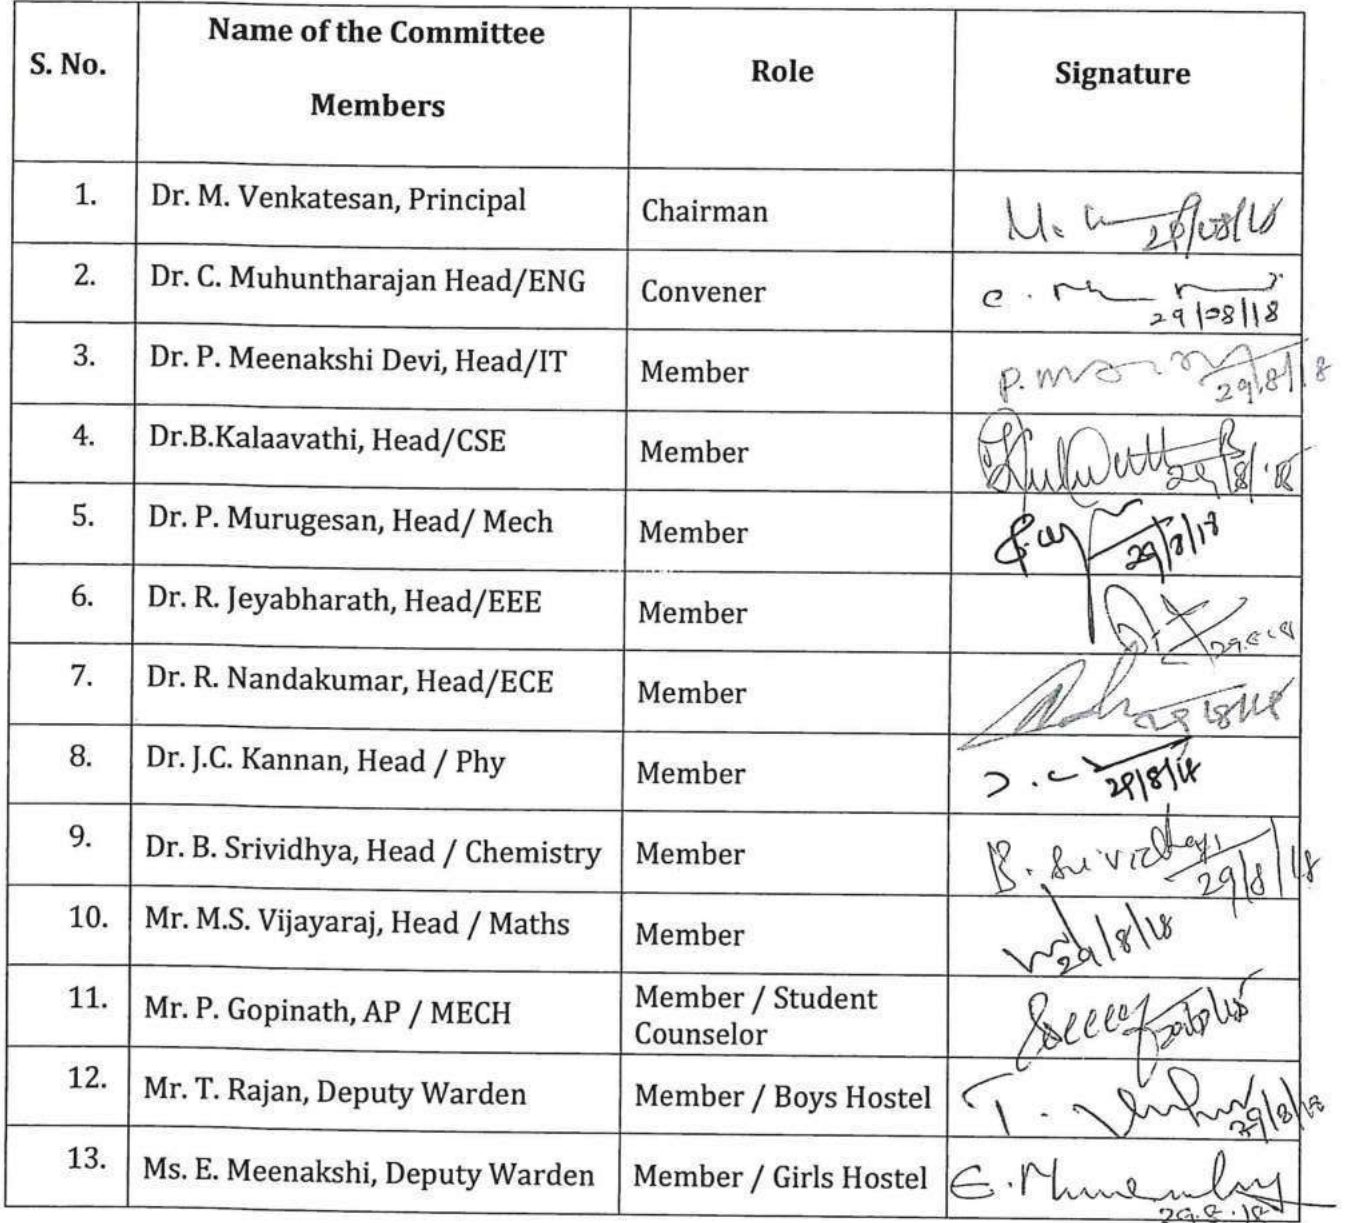 S. No.
Name of the Committee
Members
Role
Signature
1. Dr. M. Venkatesan, Principal Chairman
29/08/18
2. Dr. C. Muhuntharajan Head/ENG Convener
29/08/18
3. Dr. P. Meenakshi Devi, Head/IT Member
29/8/18
4. Dr.B.Kalaavathi, Head/CSE Member
29/8/18
5. Dr. P. Murugesan, Head/ Mech Member
29/8/18
6. Dr. R. Jeyabharath, Head/EEE Member
29.8.18
7. Dr. R. Nandakumar, Head/ECE Member
29/8/18
8. Dr. J.C. Kannan, Head / Phy Member
29/8/18
9. Dr. B. Srividhya, Head / Chemistry Member B. Srividhya
29/8/18
10. Mr. M.S. Vijayaraj, Head / Maths Member
29/8/18
11. Mr. P. Gopinath, AP / MECH Member / Student
Counselor
12. Mr. T. Rajan, Deputy Warden Member / Boys Hostel
29/8/18
13. Ms. E. Meenakshi, Deputy Warden Member / Girls Hostel
29.8.18